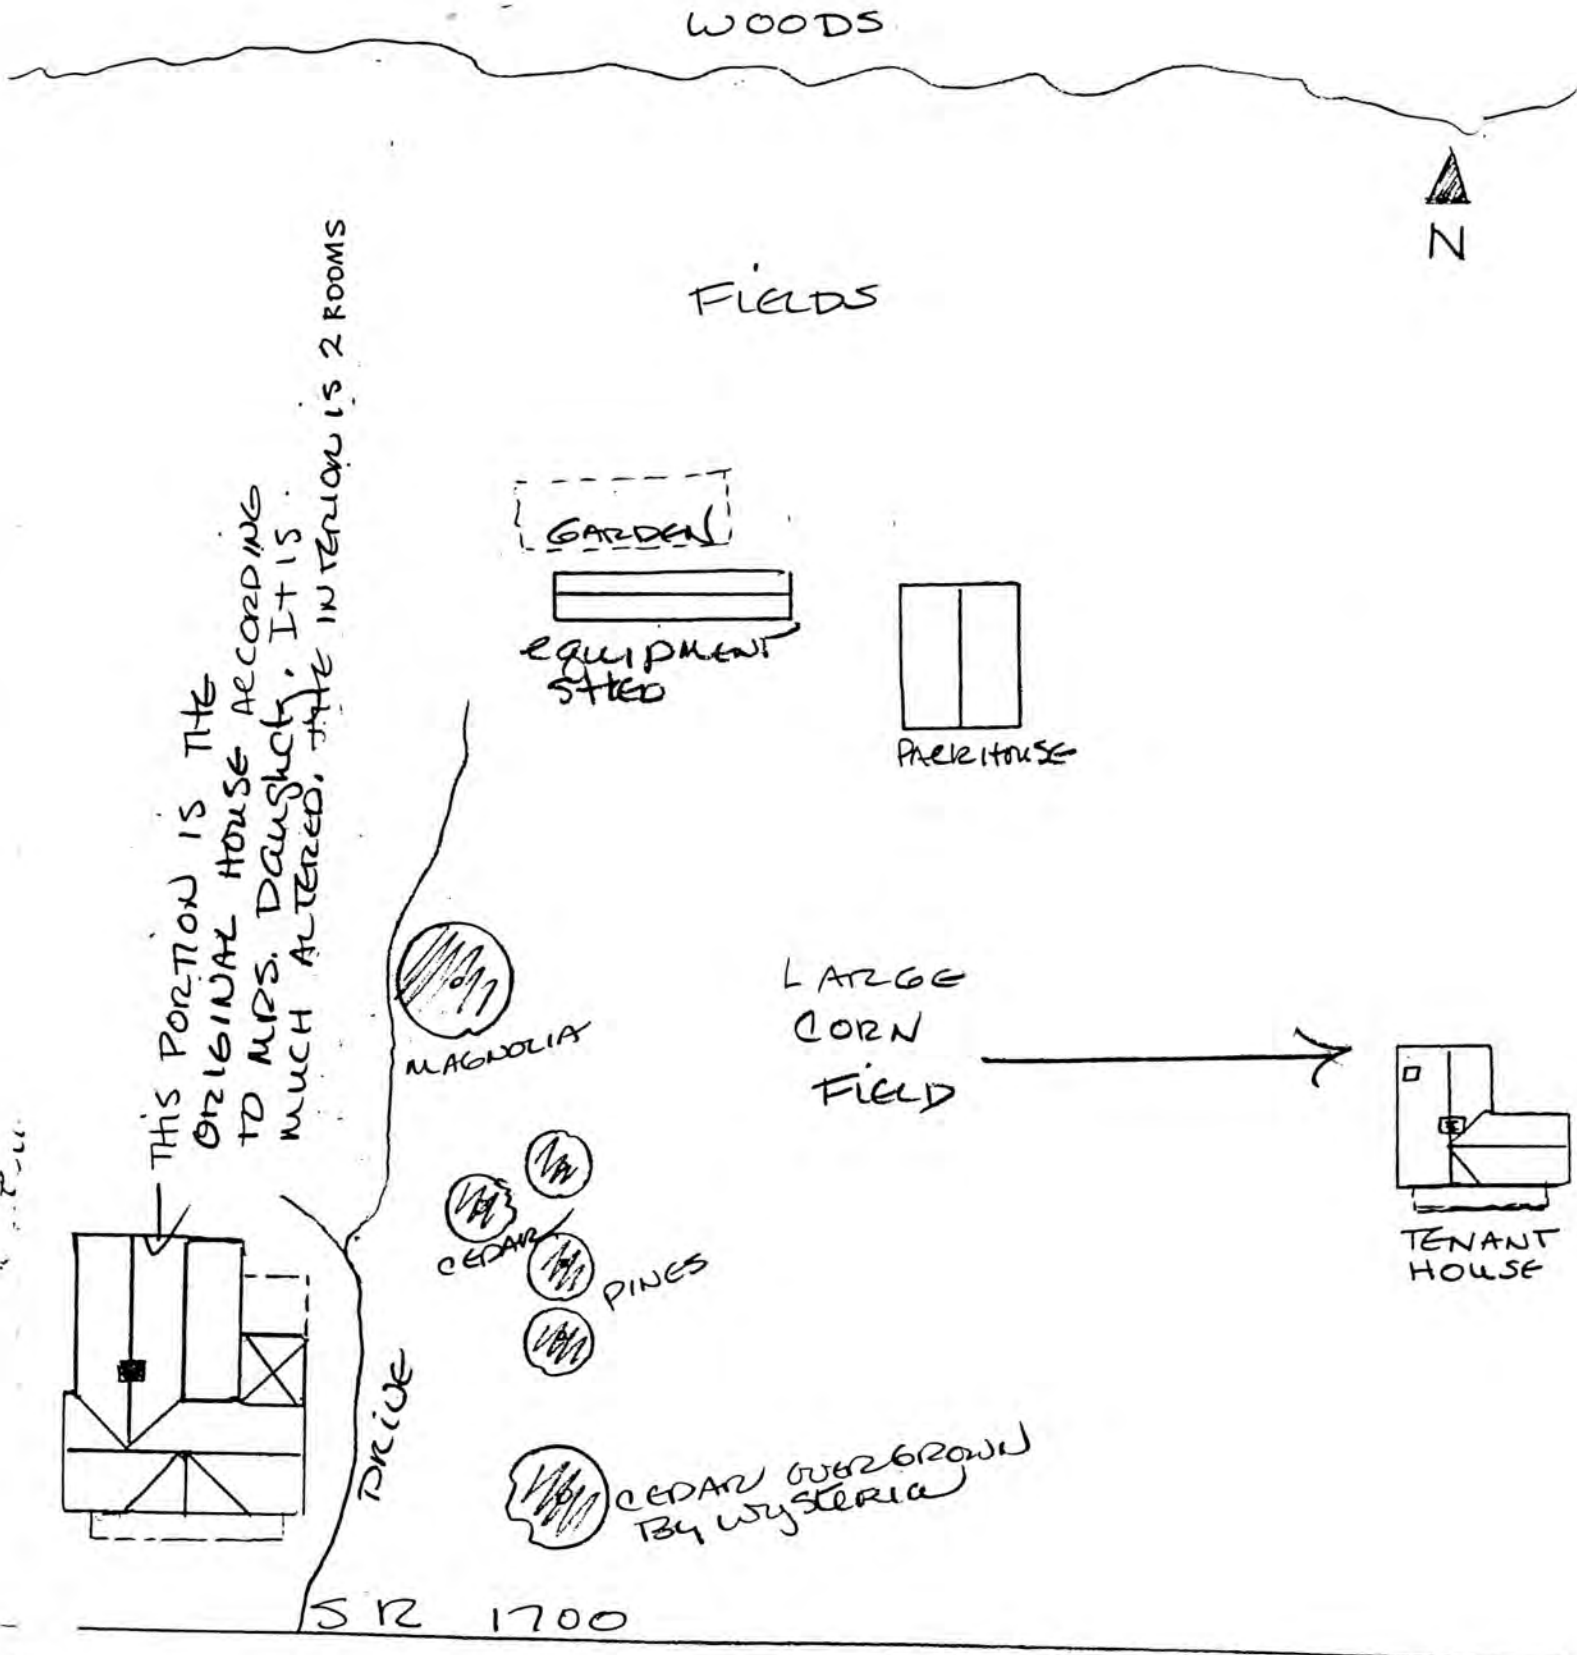 WOODS
N
FIELDS
THIS PORTION IS THE
ORIGINAL HOUSE ACCORDING
TO MRS. Daughety. It IS
MUCH ALTERED. THE INTERIOR IS 2 ROOMS
GARDEN
equipment
SHED
PACKHOUSE
MAGNOLIA
LARGE
CORN
FIELD
CEDAR
PINES
TENANT
HOUSE
DRIVE
CEDAR OVERGROWN
By wysteria
SR 1700